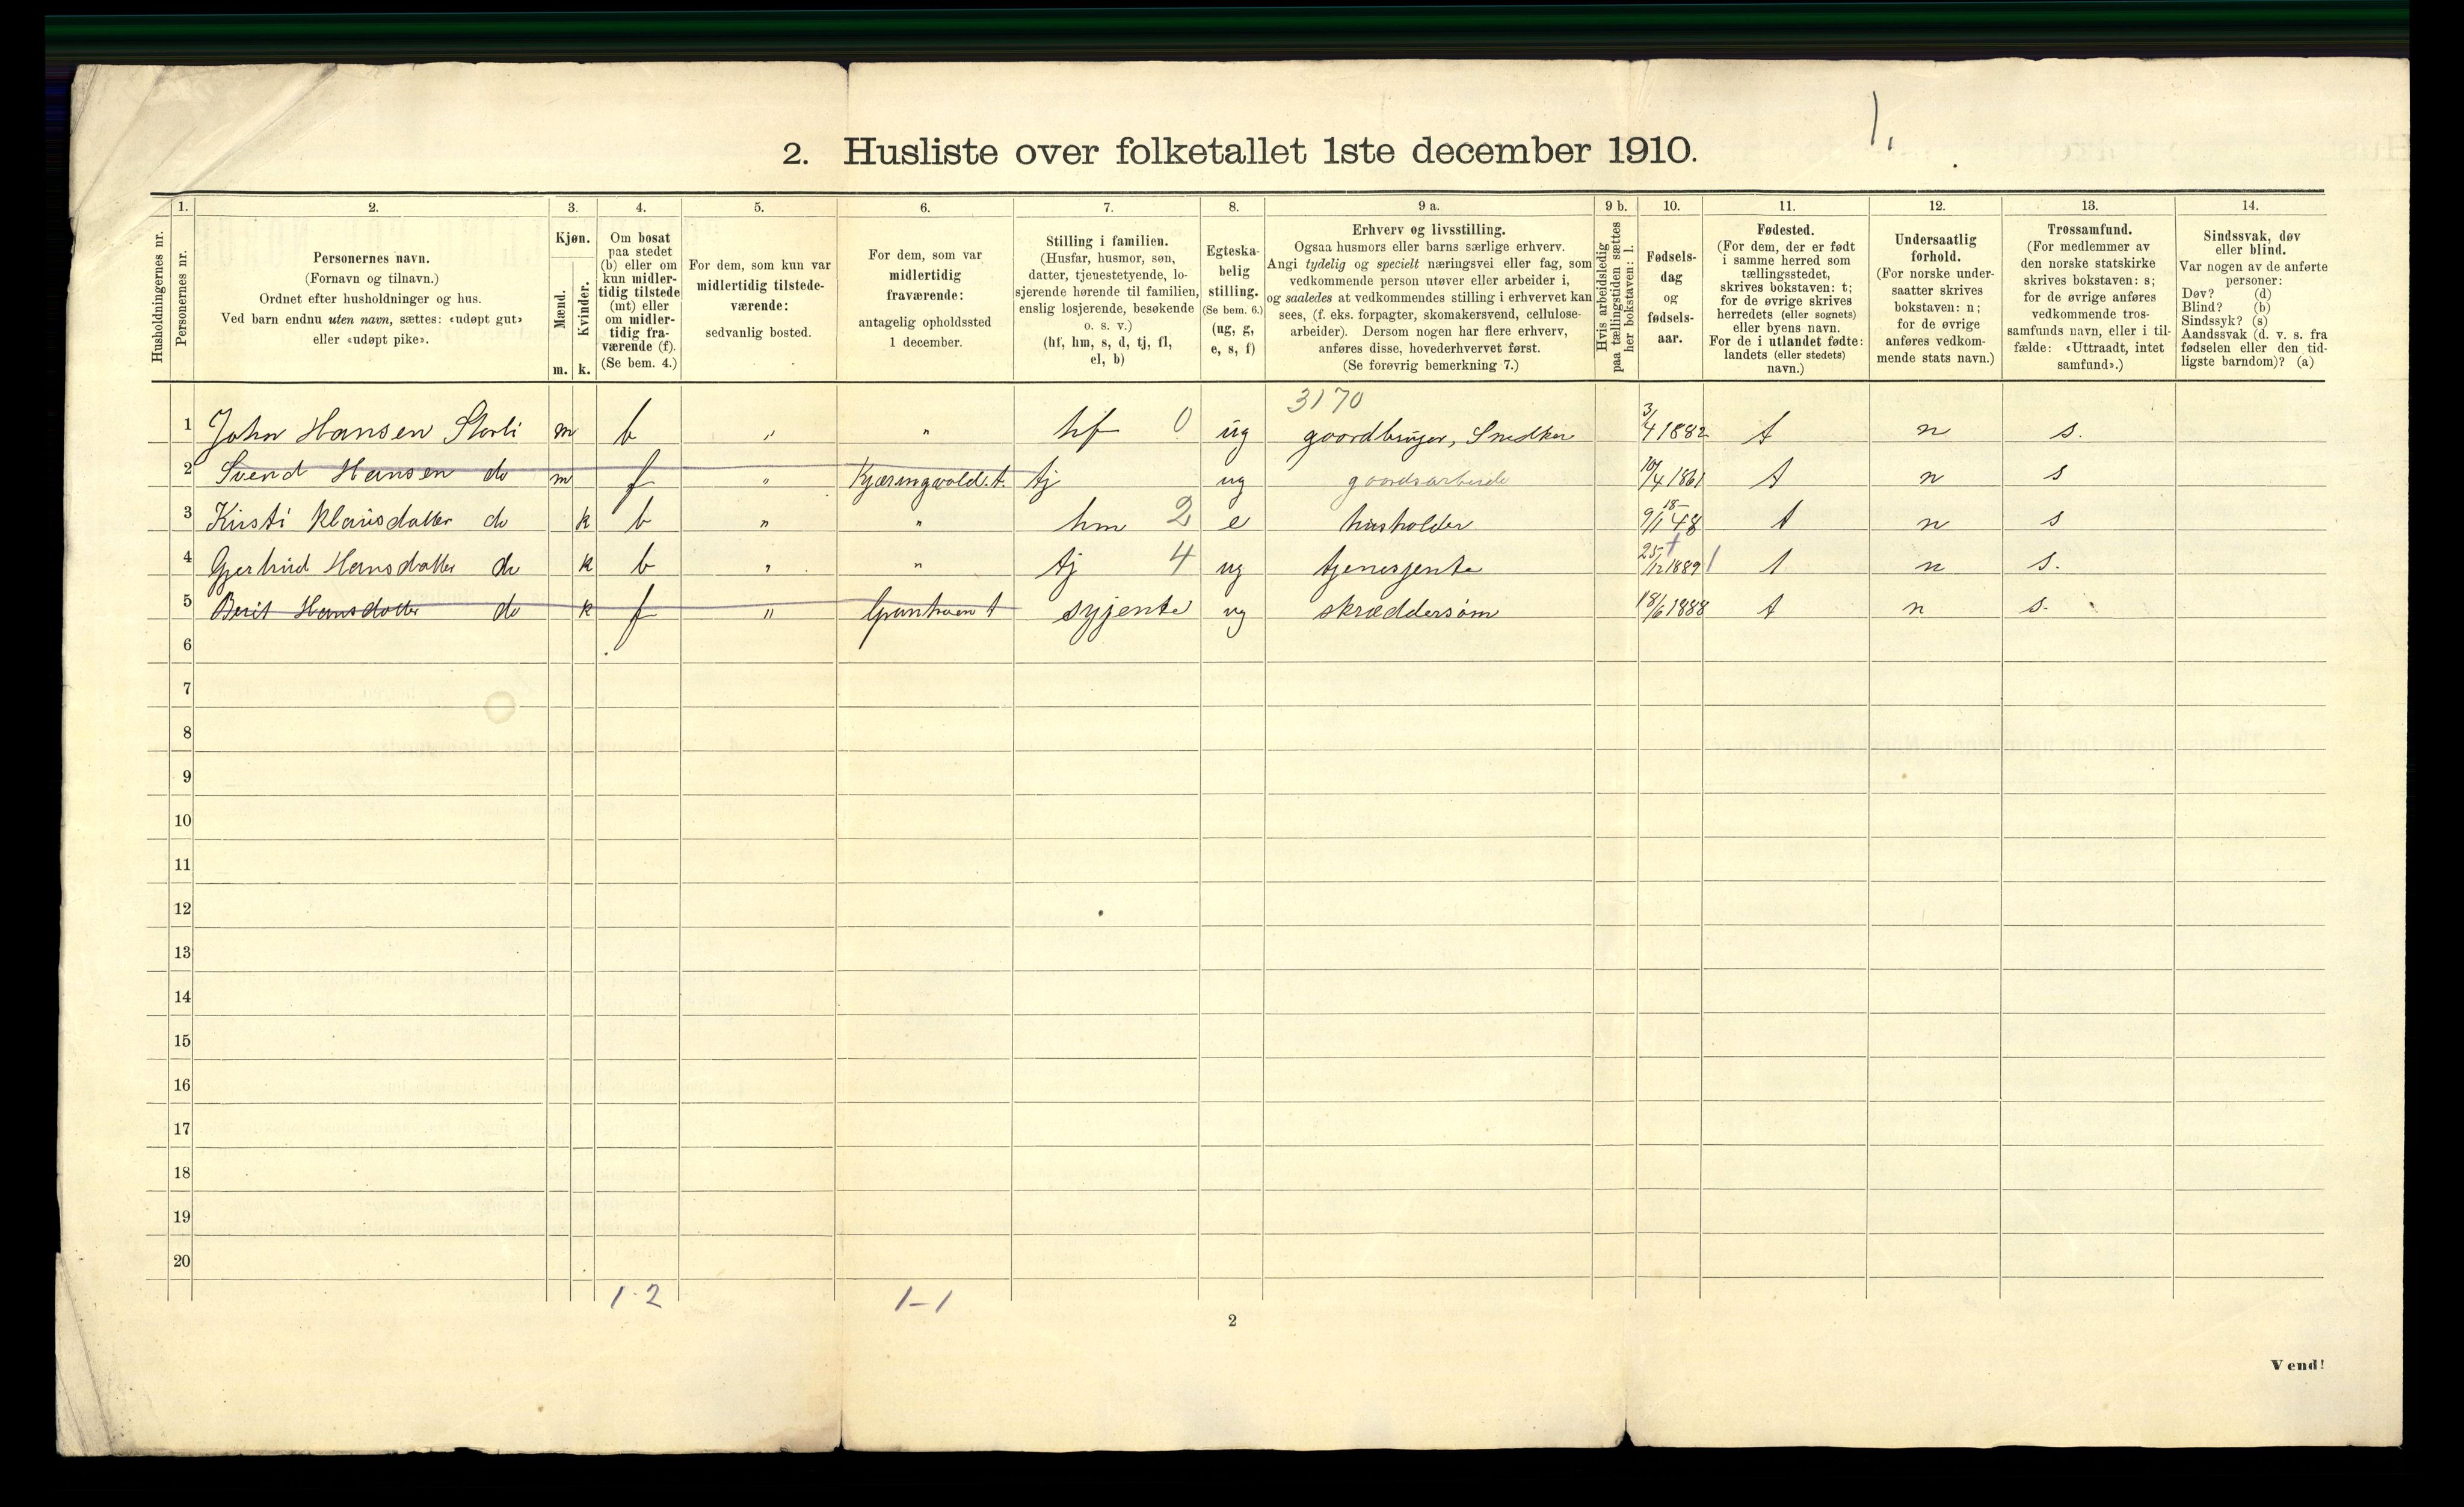 1.
2. Husliste over folketallet 1ste december 1910.
Husholdningernes nr.
1. Personernes nr.
2. Personernes navn.
(Fornavn og tilnavn.)
Ordnet efter husholdninger og hus.
Ved barn endnu uten navn, sættes: «udøpt gut»
eller «udøpt pike».
3. Kjøn.
Mænd. m.
Kvinder. k.
4. Om bosat
paa stedet
(b) eller om
kun midler-
tidig tilstede
(mt) eller
om midler-
tidig fra-
værende (f).
(Se bem. 4.)
5. For dem, som kun var
midlertidig tilstede-
værende:
sedvanlig bosted.
6. For dem, som var
midlertidig
fraværende:
antagelig opholdssted
1 december.
7. Stilling i familien.
(Husfar, husmor, søn,
datter, tjenestetyende, lo-
sjerende hørende til familien,
enslig losjerende, besøkende
o. s. v.)
(hf, hm, s, d, tj, fl,
el, b)
8. Egteska-
belig
stilling.
(Se bem. 6.)
(ug, g,
e, s, f)
9 a. Erhverv og livsstilling.
Ogsaa husmors eller barns særlige erhverv.
Angi tydelig og specielt næringsvei eller fag, som
vedkommende person utøver eller arbeider i,
og saaledes at vedkommendes stilling i erhvervet kan
sees, (f. eks. forpagter, skomakersvend, cellulose-
arbeider). Dersom nogen har flere erhverv,
anføres disse, hovederhvervet først.
(Se forøvrig bemerkning 7.)
9 b. Hvis arbeidsledig
paa tællingstiden sættes
her bokstaven: l.
10. Fødsels-
dag
og
fødsels-
aar.
11. Fødested.
(For dem, der er født
i samme herred som
tællingsstedet,
skrives bokstaven: t;
for de øvrige skrives
herredets (eller sognets)
eller byens navn.
For de i utlandet fødte:
landets (eller stedets)
navn.)
12. Undersaatlig
forhold.
(For norske under-
saatter skrives
bokstaven: n;
for de øvrige
anføres vedkom-
mende stats navn.)
13. Trossamfund.
(For medlemmer av
den norske statskirke
skrives bokstaven: s;
for de øvrige anføres
vedkommende tros-
samfunds navn, eller i til-
fælde: «Uttraadt, intet
samfund».)
14. Sindssvak, døv
eller blind.
Var nogen av de anførte
personer:
Døv? (d)
Blind? (b)
Sindssyk? (s)
Aandssvak (d. v. s. fra
fødselen eller den tid-
ligste barndom)? (a)
3170
1 John Hansen Storli m b " " hf 0 ug gaardbruger, Snedker 3/4 1882 t n s.
2 Svend Hansen do m f " Kjæringvold. t. tj ug gaardsarbeide 10/4 1861 t n s
3 Kirsti Klausdatter do k b " " hm 2 e husholder 9/1 18-48 t n s
4 Gjertrud Hansdatter do k b " " tj 4 ug tjenesjente 25/12 1889 t n s.
5 Berit Hansdatter do k f " t syjente ug skræddersøm 18/6 1888 t n s.
6
7
8
9
10
11
12
13
14
15
16
17
18
19
20
1-2 1-1
2
Vend!